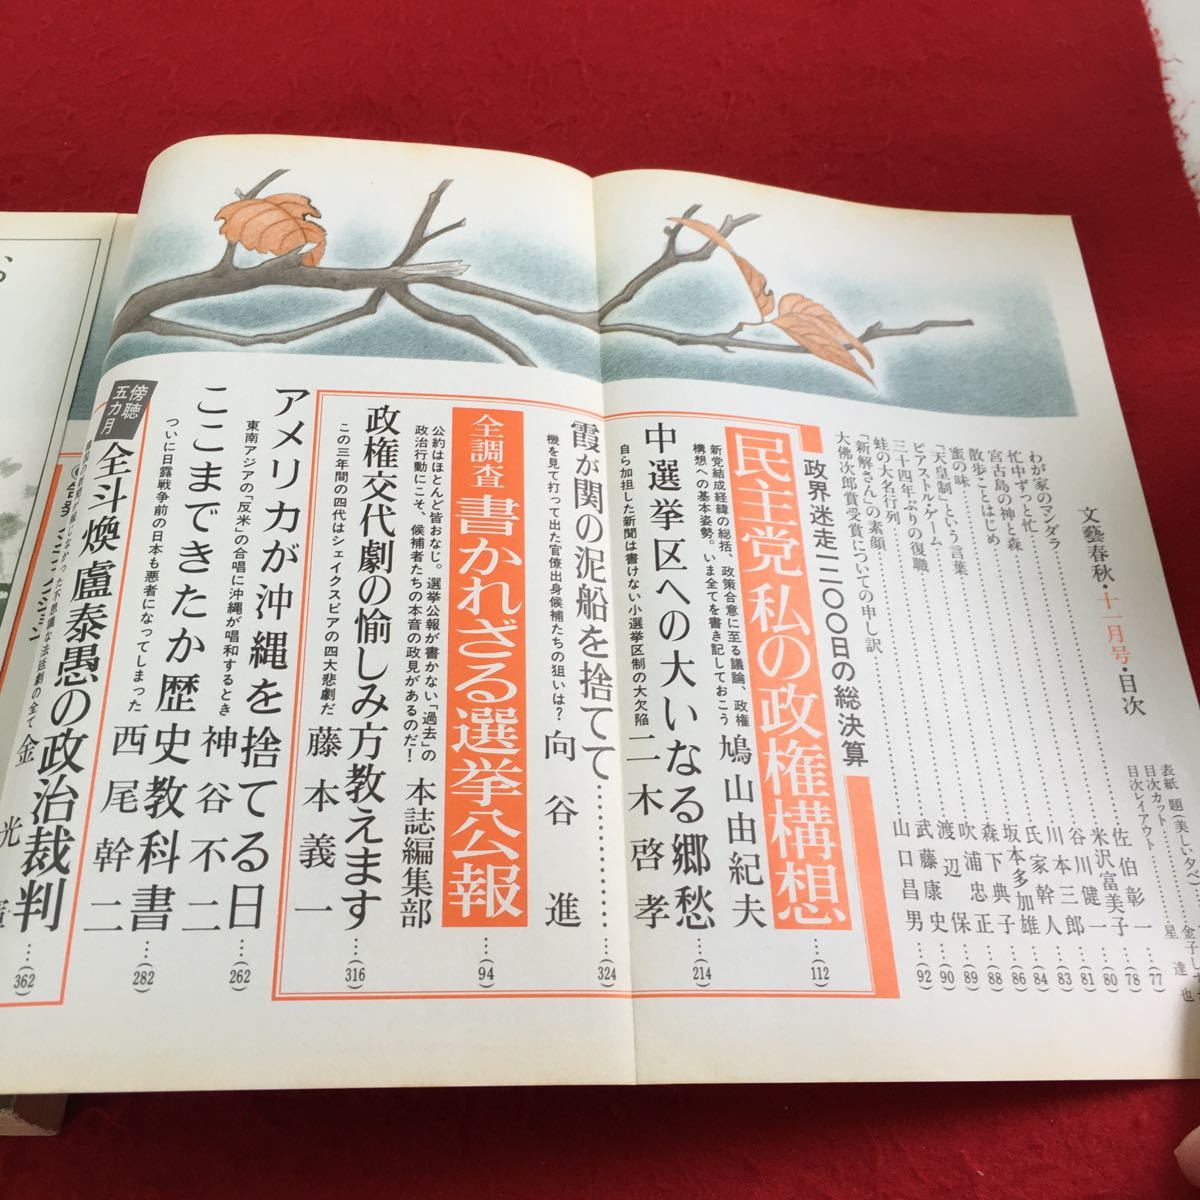 文藝春秋・十一月号・目次
表紙 題(美しい夕べ)
目次カット
目次レイアウト
金子
星 達也
わが家のマンダラ
佐伯彰一
(77)
忙中ずっと忙
米沢富美子
(78)
宮古島の神と森
谷川健一
(80)
散歩ことはじめ
川本三郎
(81)
蜜の味
氏家幹人
(83)
「天皇制」という言葉
坂本多加雄
(84)
ピアストル・ゲーム
森下典子
(86)
三十四年ぶりの復職
吹浦忠正
(88)
蛙の大名行列
渡辺保
(89)
「新解さん」の素顔
武藤康史
(90)
大佛次郎賞受賞についての申し訳
山口昌男
(92)
政界迷走一二〇〇日の総決算
民主党 私の政権構想
(112)
新党結成経緯の総括、政策合意に至る議論、政権
構想への基本姿勢。いま全てを書き記しておこう
鳩山由紀夫
中選挙区への大いなる郷愁
(214)
自ら加担した新聞は書けない小選挙区制の大欠陥
二木啓孝
霞が関の泥船を捨てて
(324)
機を見て打って出た官僚出身候補たちの狙いは?
向谷進
全調査 書かれざる選挙公報
(94)
公約はほとんど皆おなじ。選挙公報が書かない「過去」の
政治行動にこそ、候補者たちの本音の政見があるのだ!
本誌編集部
政権交代劇の愉しみ方教えます
(316)
この三年間の四代はシェイクスピアの四大悲劇だ
藤本義一
アメリカが沖縄を捨てる日
(262)
東南アジアの「反米」の合唱に沖縄が唱和するとき
神谷不二
ここまできたか歴史教科書
(282)
ついに日露戦争前の日本も悪者になってしまった
西尾幹二
傍聴
五カ月
全斗煥 盧泰愚の政治裁判
(362)
不思議な法廷劇の全て
金光